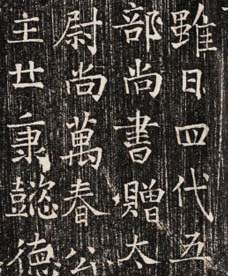 雖曰四代五
部尚書贈太
尉尚萬春公
主世秉懿德